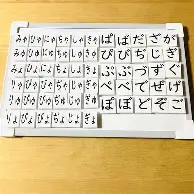 みゃひゃにゃちゃしゃきゃ ぱばだざが
みゅひゅにゅちゅしゅきゅ ぴびぢじぎ
みょひょにょちょしょきょ ぷぶづずぐ
りゃぴゃびゃぢゃじゃぎゃ ぺべでぜげ
りゅぴゅびゅぢゅじゅぎゅ ぽぼどぞご
りょぴょびょぢょじょぎょ